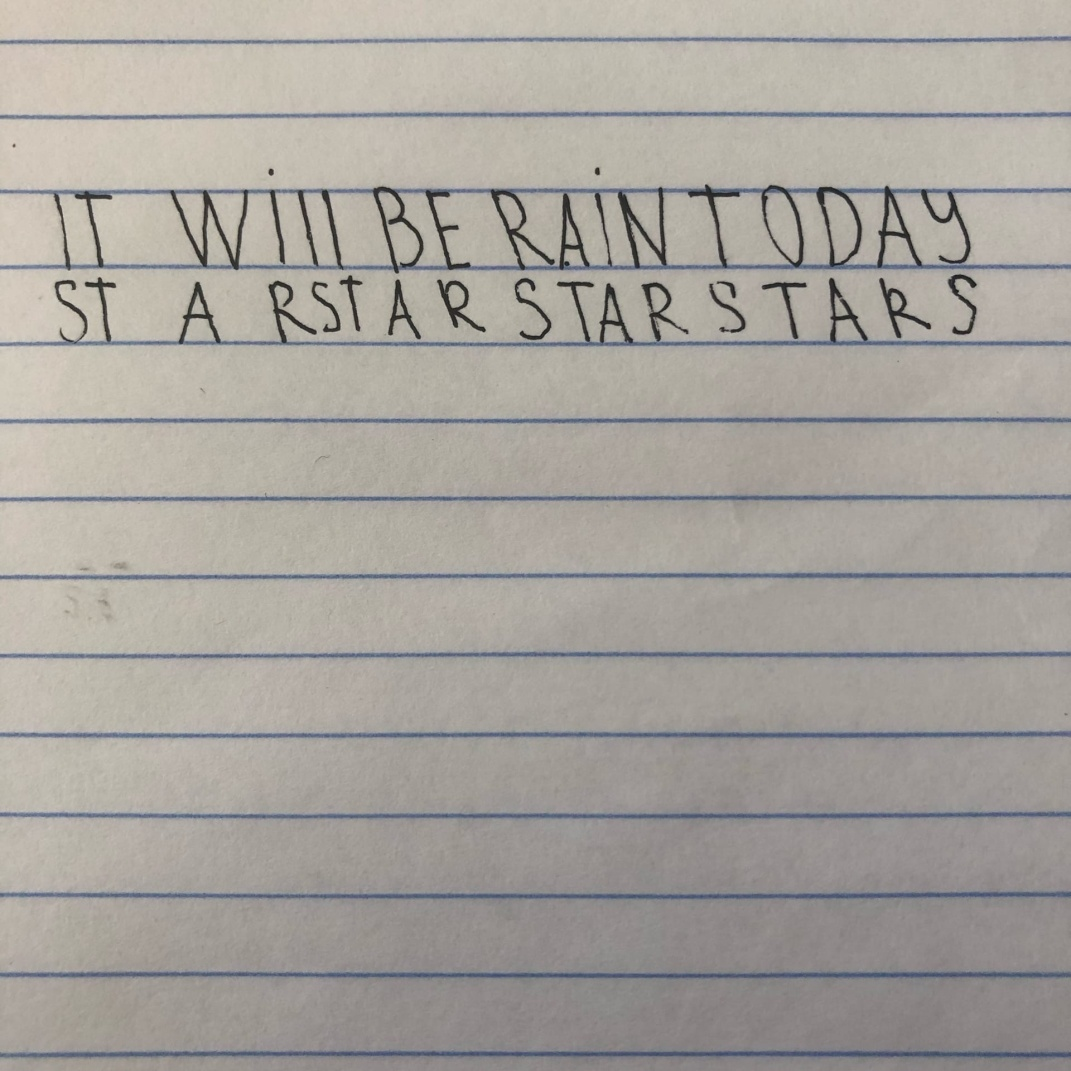 IT Will BE RAiN TODAY
ST A RSTAR STARSTARS